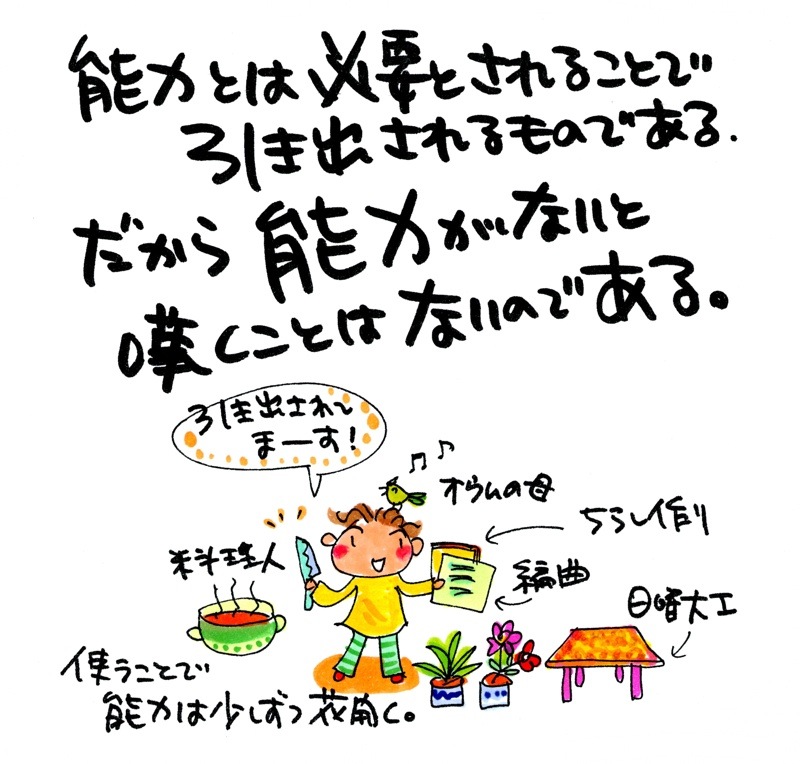 能力とは必要とされることで
引き出されるものである.
だから能力がないと
嘆くことはないのである。
引き出されて
まーす!
オウムの母
ちらし作り
料理人
編曲
日曜大工
使うことで
能力は少しずつ花開く。